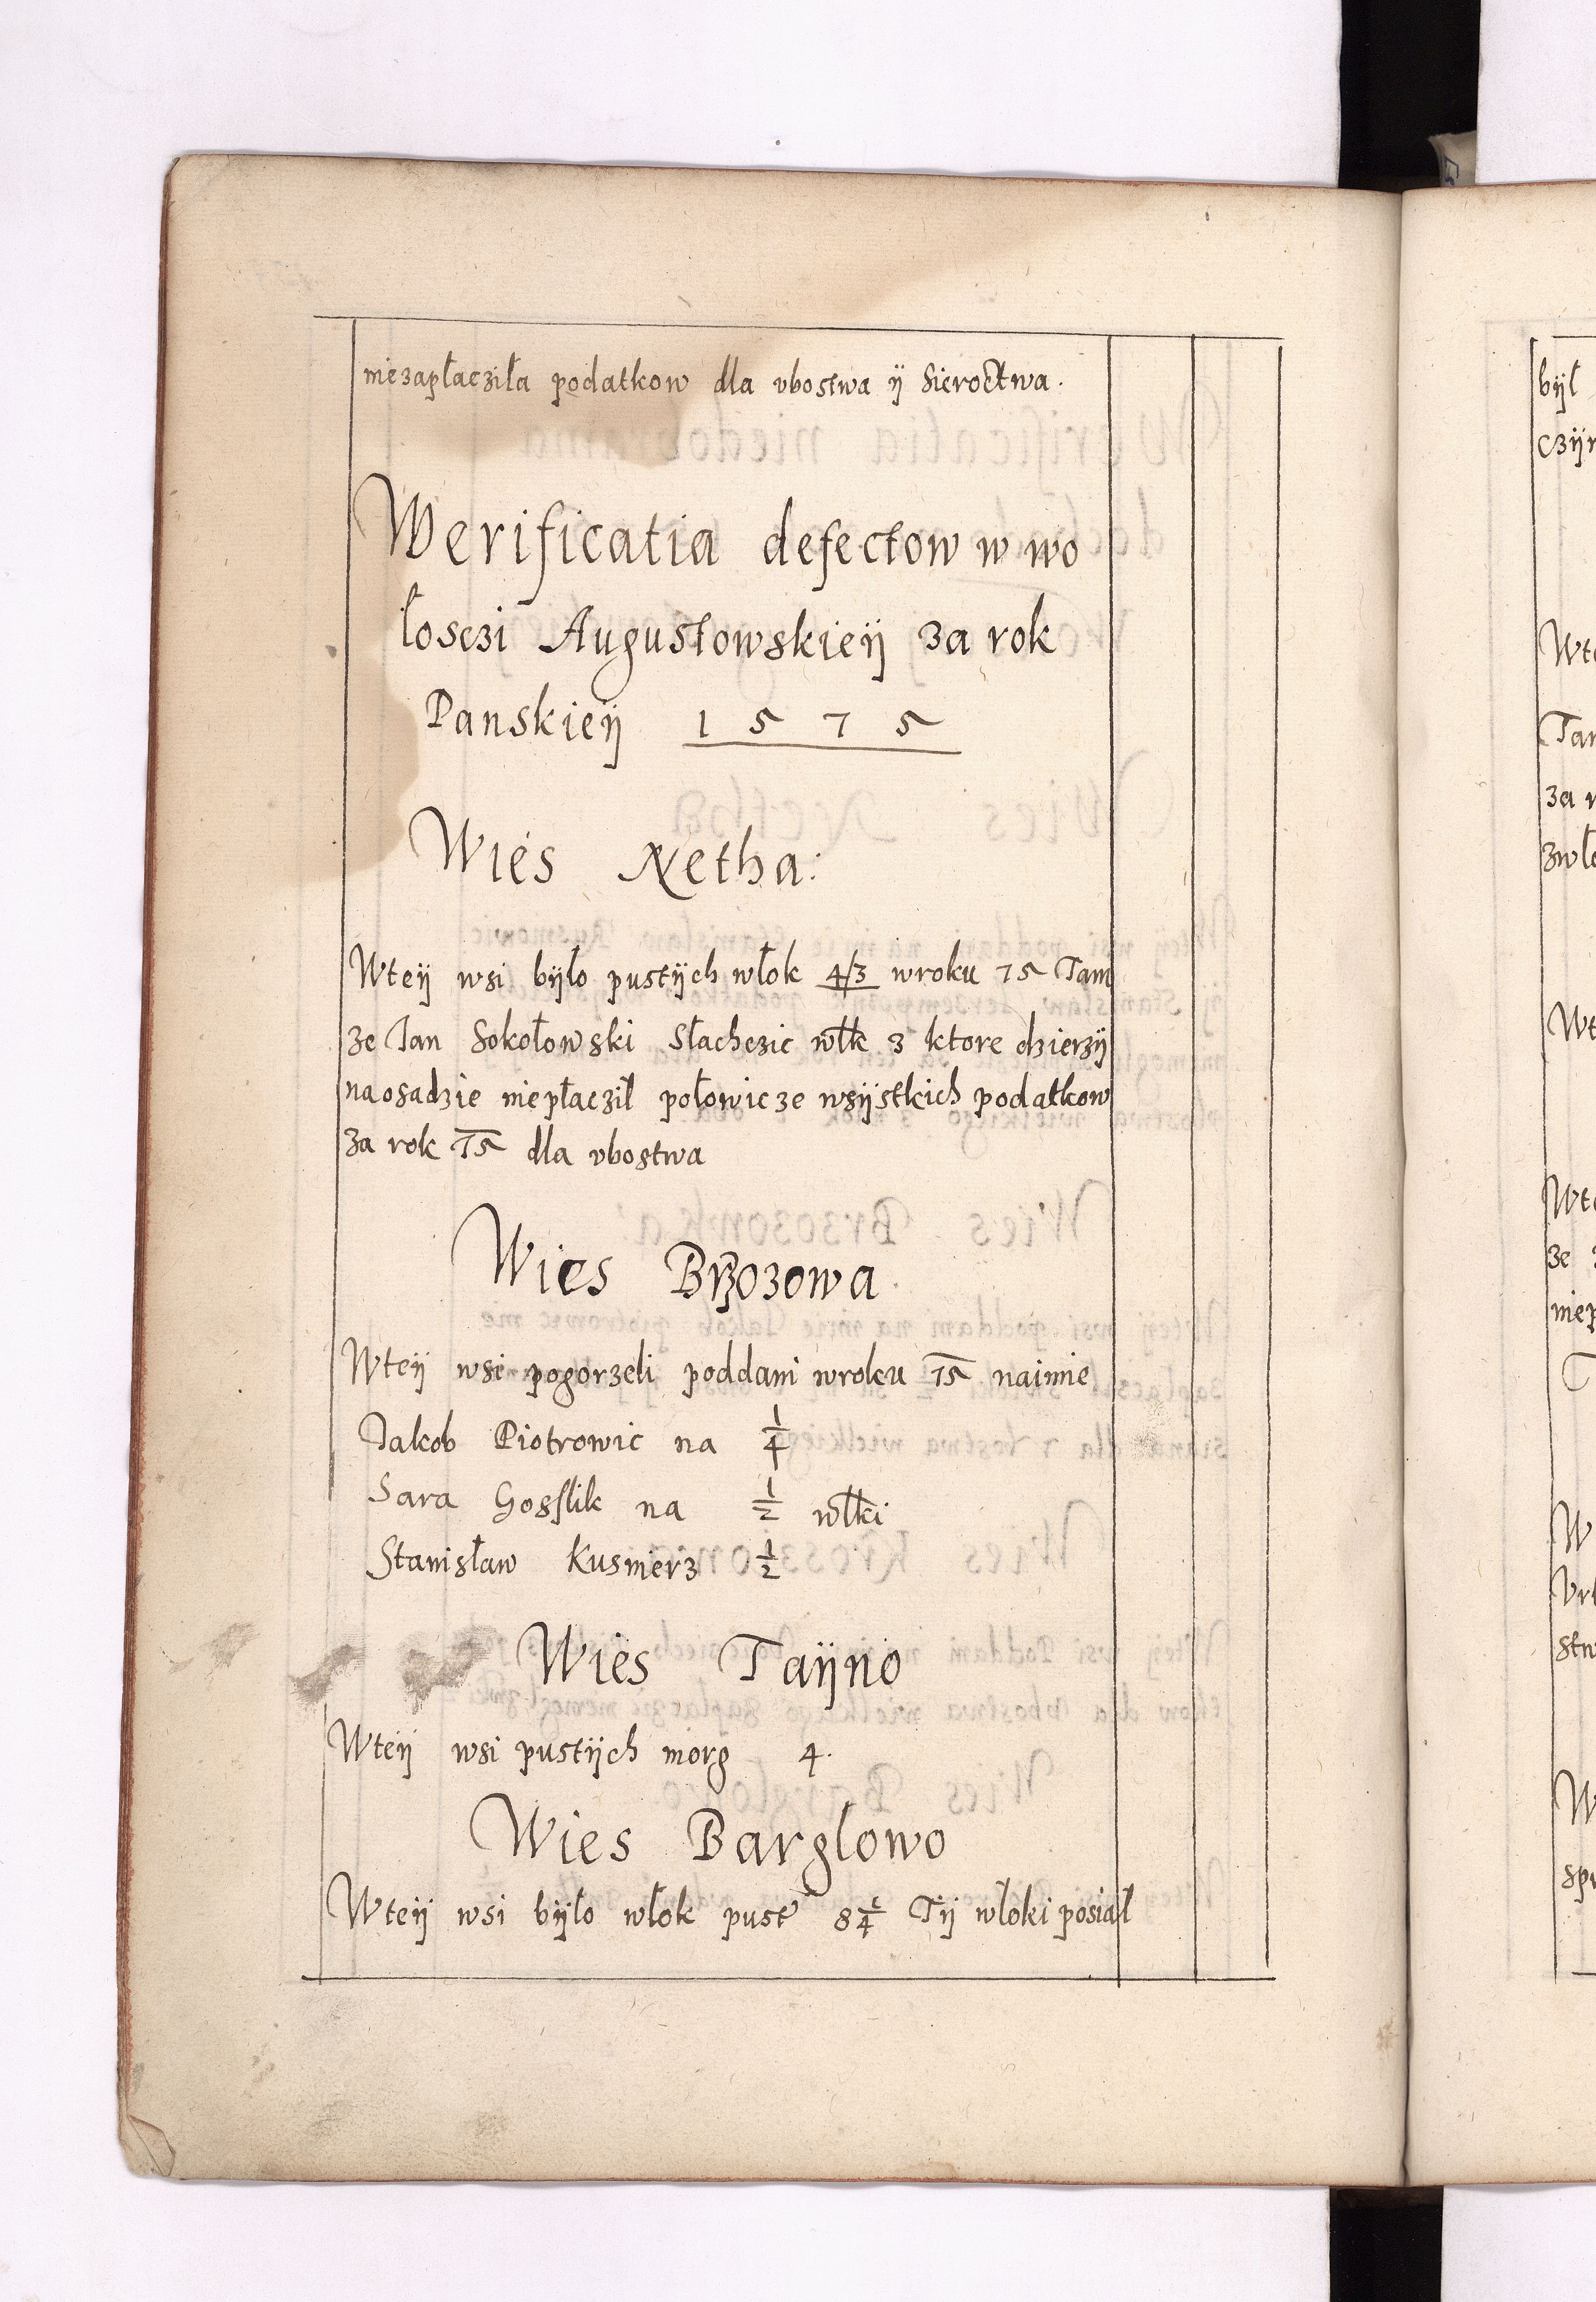 niezapłacziła podatkow dla vbostwa ÿ Sieroctwa.
Werificatia defectow w wo
łosczi Augustowskieÿ za rok
Panskieÿ 1 5 7 5
Wies Netha:
Wteÿ wsi bÿło pustÿch włok 4/3 wroku 75 Tam
ze Jan Sokołowski Słachczic włk 3 ktore dzierzÿ
na osadzie niepłacził połowicze wsÿstkich podatkow
za rok 75 dla vbostwa
Wies Brzozowa
Wteÿ wsi pogorzeli poddani wroku 75 naimie
Jakob Piotrowic na 1/4
Sara Gosslik na 1/2 włki
Stanisław Kusnierz 1/2
Wies Taÿno
Wteÿ wsi pustÿch morg 4.
Wies Barglowo
Wteÿ wsi bÿło włok pust 8 1/4 Tÿ włoki posiał
bÿł
czÿn
Wte
Tan
za
zwło
Wt
Wte
ze
niep
W
stw
W